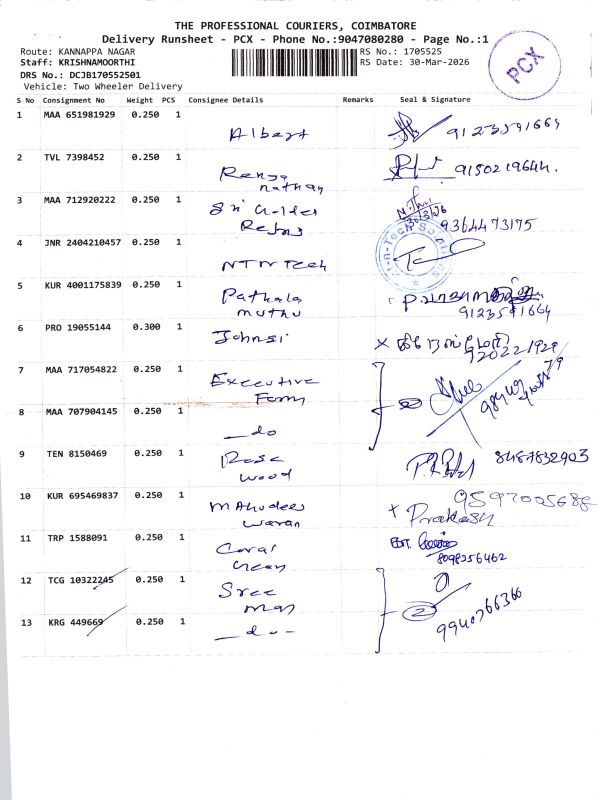 THE PROFESSIONAL COURIERS, COIMBATORE
Delivery Runsheet - PCX - Phone No.:9047080280 - Page No.:1
Route: KANNAPPA NAGAR
RS No.: 1705525
Staff: KRISHNAMOORTHI
RS Date: 30-Mar-2026
DRS No.: DCJB170552501
Vehicle: Two Wheeler Delivery
PCX
S No Consignment No Weight PCS Consignee Details Remarks Seal & Signature
1 MAA 651981929 0.250 1 Albert
2 TVL 7398452 0.250 1 Renga nathan 9150219644.
3 MAA 712920222 0.250 1 Sri 30/3/26 9364473175
4 JNR 2404210457 0.250 1 NTN Tech
5 KUR 4001175839 0.250 1 Pathala muthu
9123591664
6 PRO 19055144 0.300 1 Johnsi
7 MAA 717054822 0.250 1 Executive
8 MAA 707904145 0.250 1 -do
9 TEN 8150469 0.250 1 Rose wood 8487832903
10 KUR 695469837 0.250 1 Prakash
11 TRP 1588091 0.250 1 8098256462
12 TCG 10322245 0.250 1 Sree
2
13 KRG 449669 0.250 1 -do-
9940766366